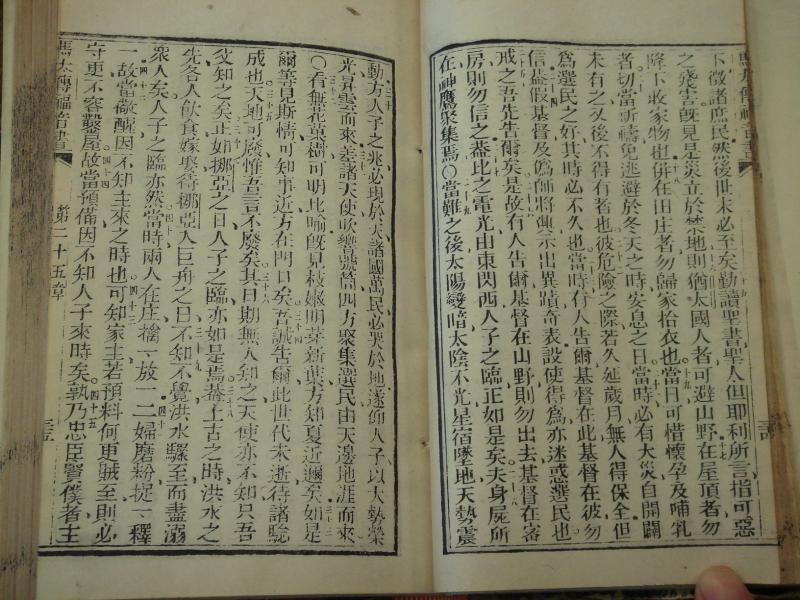 下徵諸庶民然後世末必至矣勤讀聖書聖人但耶利所言指可惡
之殘害旣見是災立於禁地則猶太國人者可避山野在屋頂者勿
降下收家物也併在田庄者勿歸家抬衣也當日可惜懷孕及哺乳
者切當祈禱免逃避於冬天之時安息之日當時必有大災自開闢
未有之又後不得有者也彼危險之際若久延歲月無人得保全但
爲選民之好其時必不久也當時有人告爾基督在此基督在彼勿
信益假基督及僞師將興示出異蹟奇表設使得爲亦迷惑選民也
戒之吾先告爾矣是故有人告爾基督在山野則勿出去基督在密
房則勿信之葢比之電光由東閃西人子之臨正如是矣夫身屍所
在神鷹聚集焉〇當難之後太陽變暗太陰不光星宿墜地天勢震
動方人子之兆必現於天諸國萬民必哭於地遂仰人子以大勢榮
光昇雲而來差諸天使吹響號筒四方聚集選民由天邊地涯而來
〇看無花菓樹可明比喻旣見枝嫩明芽新葉方知夏近邇矣如是
爾等見斯情可知事近方在門口矣吾誠告爾此世代未逝待諸驗
成也天地可廢惟吾言不廢矣其日期無人知之天使亦不知只吾
父知之矣正如挪亞之日人子之臨亦如是焉葢上古之時洪水之
先各人飲食嫁娶待挪亞人巨舟之日不知不覺洪水驟至而盡溺
衆人矣人子之臨亦然當時兩人在庄擒一放一二婦磨粉捉一釋
一故當儆醒因不知主來之時也可知家主若預料何更賊至則必
守更不容鑿屋故當預備因不知人子來時矣孰乃忠臣賢僕者主
馬太傳福音書 第二十五章